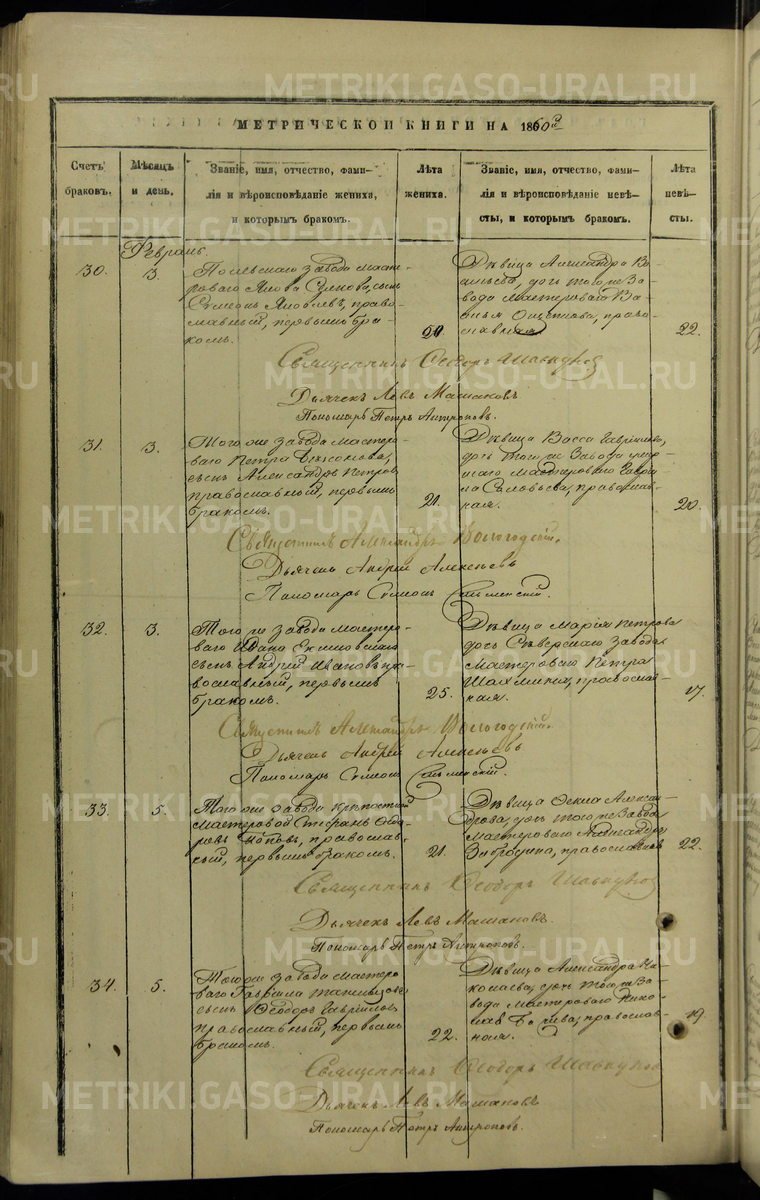 МЕТРИЧЕСКОЙ КНИГИ НА 1860й
Счетъ браковъ.
Мѣсяцъ и день.
Званіе, имя, отчество, фами-
лія и вѣроисповѣданіе жениха,
и которымъ бракомъ.
Лѣта жениха.
Званіе, имя, отчество, фами-
лія и вѣроисповѣданіе невѣ-
сты, и которымъ бракомъ.
Лѣта невѣ-
сты.
Февраль.
30.
3.
Полевскаго завода масте-
роваго Якова сынъ
Симеонъ Яковлевъ, право-
славный, первымъ бра-
комъ.
Дѣвица Александра Ва-
сильева, дочь того же за-
вода мастероваго Ва-
силья право-
славная
22.
Священникъ Ѳеодоръ
Дьячекъ Левъ
Пономарь Петръ Антроповъ.
31.
3.
Того же завода мастеро-
ваго Петра
сынъ Александръ Петровъ
православный, первымъ
бракомъ.
21.
Дѣвица Васса Гавріилова,
дочь того же завода
мастероваго Гаврі-
ила Соловьева, православ-
ная.
20.
Священникъ Александръ Вологодскій.
Дьячекъ Андрей Алексѣевъ
Пономарь Симеонъ
32.
3.
Того же завода мастеро-
ваго Ивана
сынъ Андрей Ивановъ, пра-
вославный, первымъ
бракомъ.
25.
Дѣвица Марія Петрова
дочь Сѣверскаго завода
мастероваго Петра
православ-
ная.
17.
Священникъ Александръ Вологодскій.
Дьячекъ Андрей Алексѣевъ
Пономарь Симеонъ
33.
5.
Того же завода крѣпостной
мастеровой Стефанъ
Поповъ, православ-
ный, первымъ бракомъ.
21.
Дѣвица Ѳекла Алексан-
дрова, дочь того же завода
мастероваго Александра
православная
22.
Священникъ Ѳеодоръ
Дьячекъ Левъ
Пономарь Петръ Антроповъ.
34.
5.
Того же завода мастеро-
ваго Гавріила
сынъ Ѳеодоръ Гавріиловъ
православный, первымъ
бракомъ.
22.
Дѣвица Александра Ни-
колаева, дочь того же за-
вода мастероваго Нико-
лая православ-
ная.
19.
Священникъ Ѳеодоръ
Дьячекъ Левъ
Пономарь Петръ Антроповъ.
METRIKI.GASO-URAL.RU